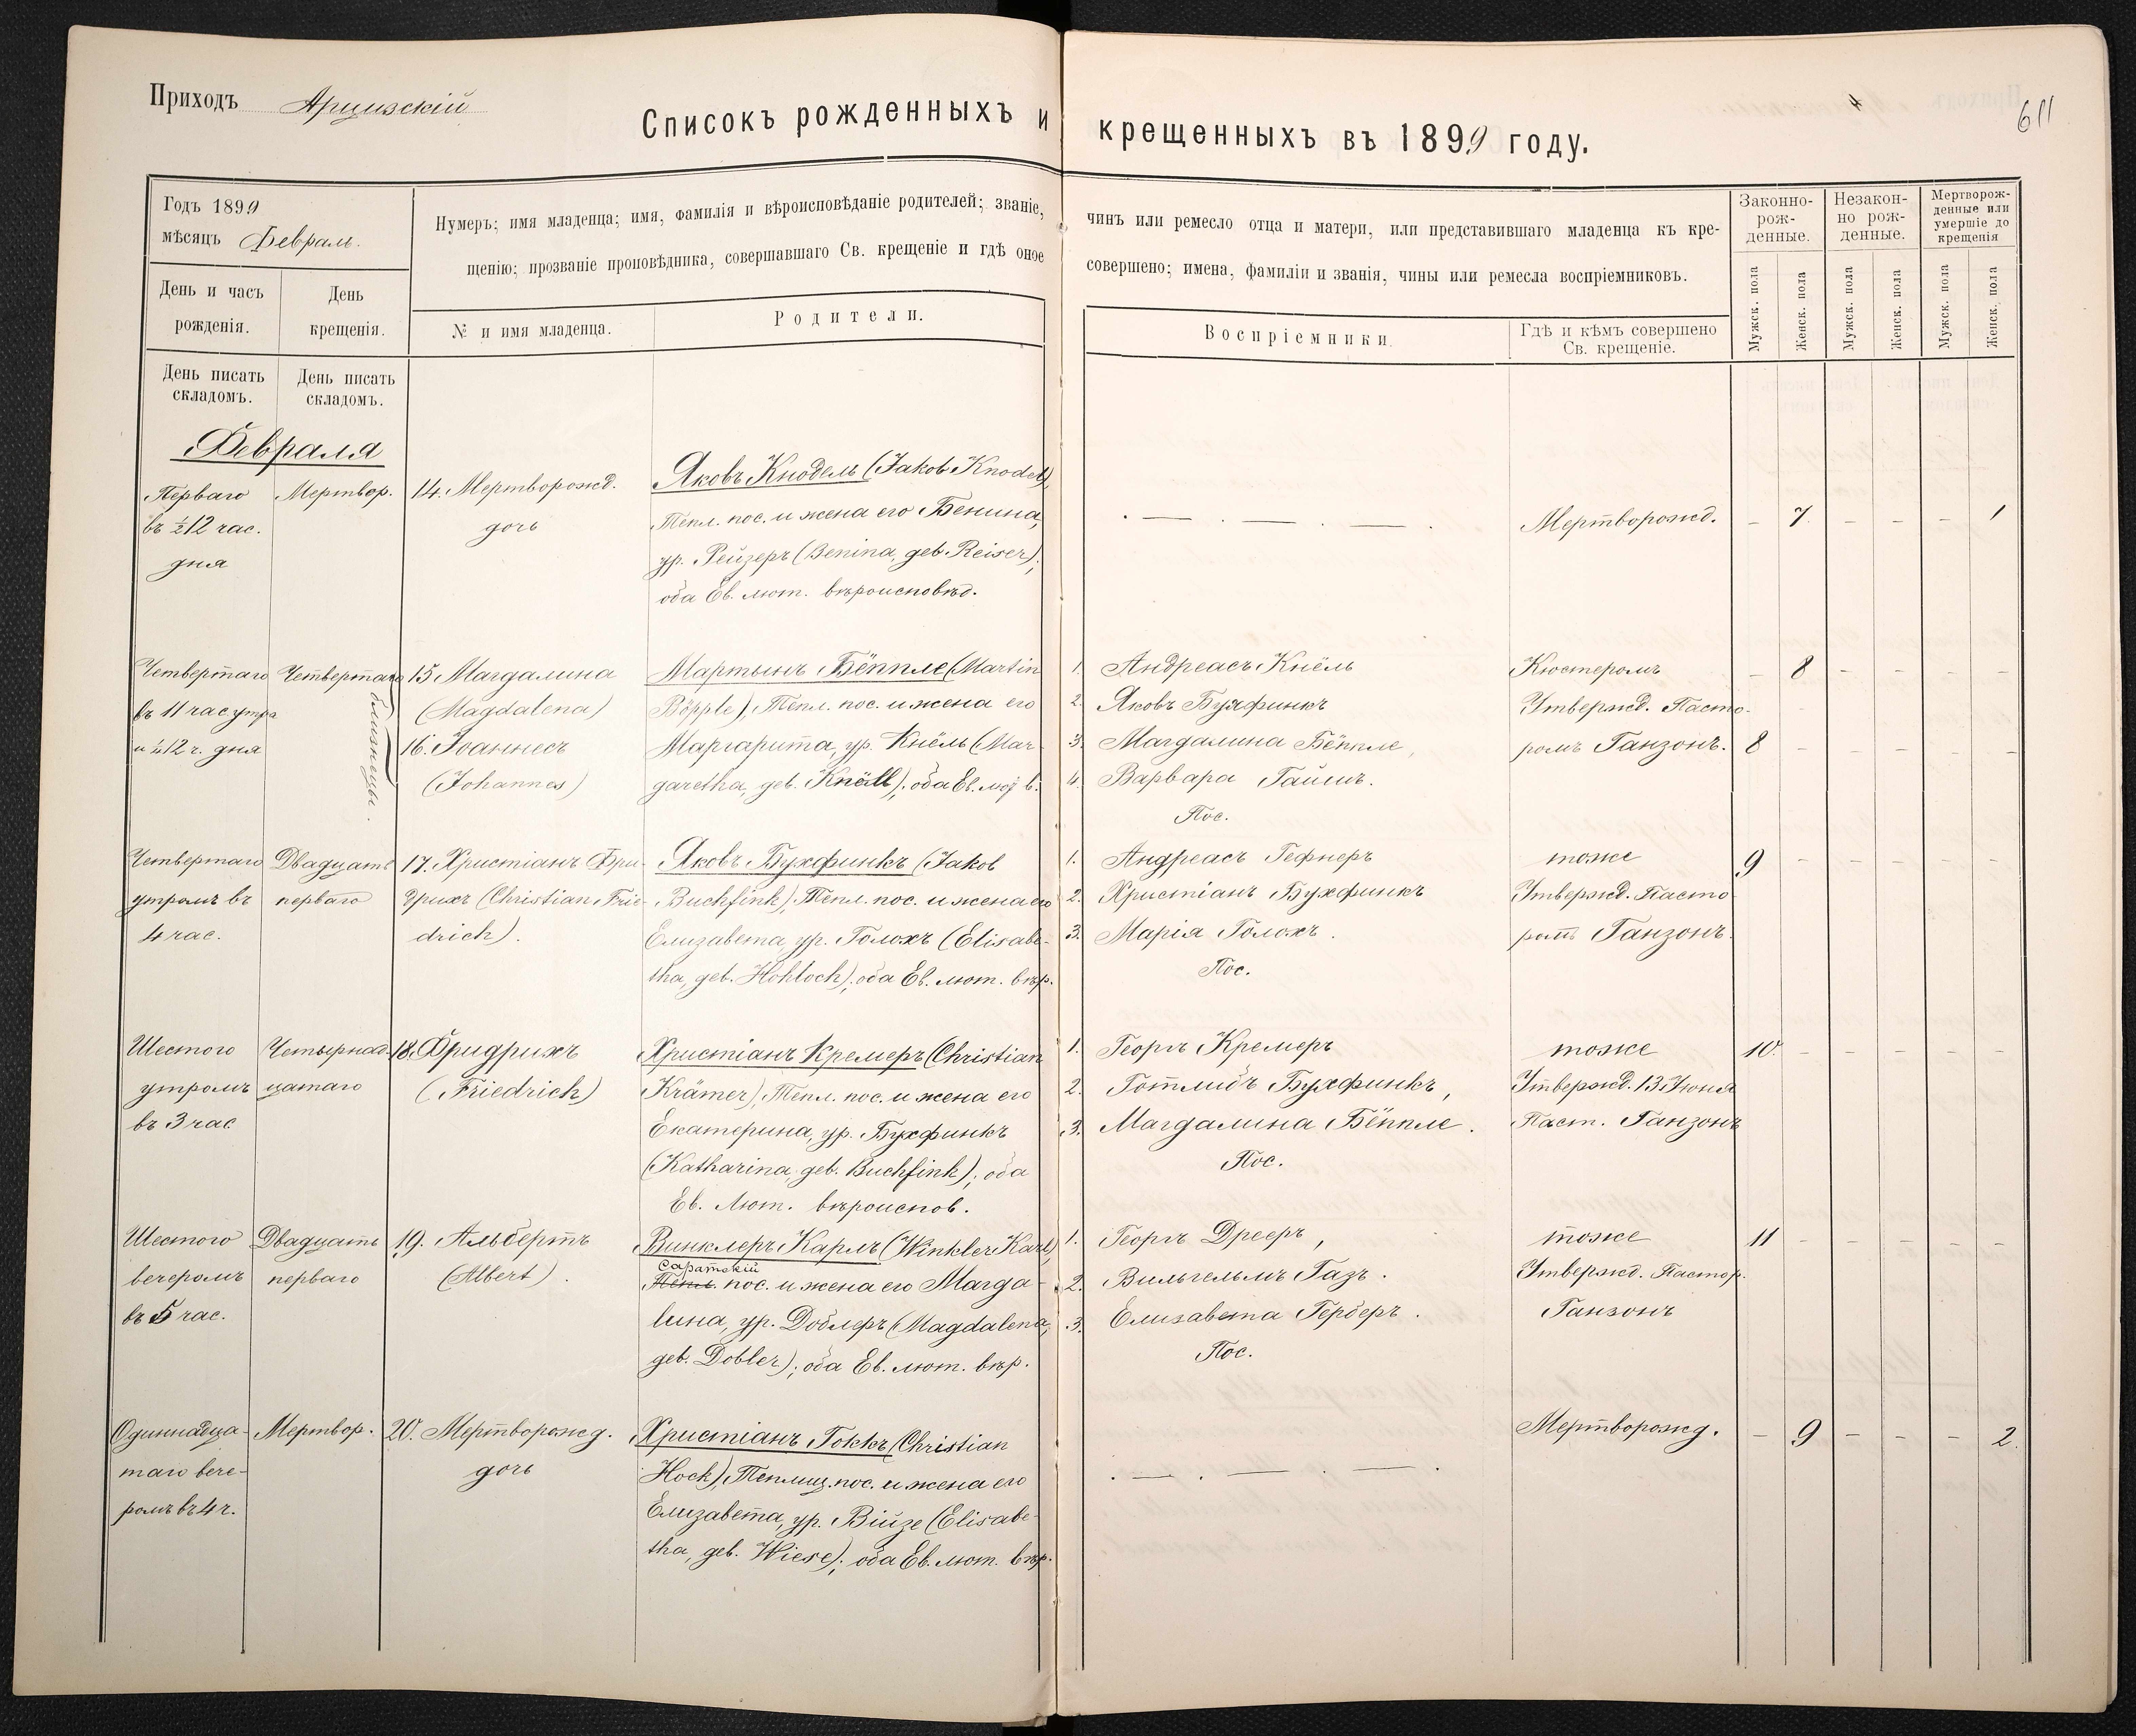 Приходъ Арцизскій
Списокъ рожденныхъ и крещенныхъ въ 1899 году.
611
Годъ 1899
мѣсяцъ Февраль.
День и часъ рожденія.
День крещенія.
Нумеръ; имя младенца; имя, фамилія и вѣроисповѣданіе родителей; званіе, чинъ или ремесло отца и матери, или представившаго младенца къ кре-
щенію; прозваніе проповѣдника, совершавшаго Св. крещеніе и гдѣ оное совершено; имена, фамиліи и званія, чины или ремесла воспріемниковъ.
№ и имя младенца.
Родители.
Воспріемники.
Гдѣ и кѣмъ совершено
Св. крещеніе.
Законно-
рож-
денные.
Незакон-
но рож-
денные.
Мертворож-
денные или
умершіе до
крещенія
Мужск. пола
Женск. пола
Мужск. пола
Женск. пола
Мужск. пола
Женск. пола
День писать
складомъ.
День писать
складомъ.
Февраля
Перваго
въ ½12 час.
дня
Мертвор.
14. Мертворожд.
дочь
Яковъ Кнодель (Jakob Knodel),
Тепл. пос. и жена его Бенина,
ур. Рейзеръ (Benina, geb. Reiser);
оба Ев. лют. вѣроисповѣд.
. — . — . — .
Мертворожд.
– 7 – – – 1
Четвертаго
въ 11 час утра
и ½12 ч. дня
Четвертаго
близнецы.
15 Магдалина
(Magdalena)
16. Іоаннесъ
(Johannes)
Мартынъ Бёппле (Martin
Böpple), Тепл. пос. и жена его
Маргарита, ур. Кнёль (Mar-
garetha, geb. Knöll); оба Ев. лют. в.
1. Андреасъ Кнёль
2. Яковъ Бухфинкъ
3. Магдалина Бёппле,
4. Варвара Гаймъ.
Пос.
Кюстеромъ
Утвержд. Пасто-
ромъ Ганзонъ.
– 8 – – – –
8 – – – – –
Четвертаго
утромъ въ
4 час.
Двадцать
перваго
17. Христіанъ Фри-
дрихъ (Christian Frie-
drich).
Яковъ Бухфинкъ (Jakob
Buchfink), Тепл. пос. и жена его
Елизавета, ур. Голохъ (Elisabe-
tha, geb. Hohloch); оба Ев. лют. вѣр.
1. Андреасъ Гефнеръ
2. Христіанъ Бухфинкъ
3. Марія Голохъ.
Пос.
тоже
Утвержд. Пасто-
ромъ Ганзонъ.
9 – – – – –
Шестого
утромъ
въ 3 час
Четырнад-
цатаго
18. Фридрихъ
(Friedrich)
Христіанъ Кремеръ (Christian
Krämer), Тепл. пос. и жена его
Екатерина, ур. Бухфинкъ
(Katharina, geb. Buchfink); оба
Ев. Лют. вѣроиспов.
1. Георгъ Кремеръ
2. Готлибъ Бухфинкъ,
3. Магдалина Бёппле.
Пос.
тоже
Утвержд. 13 Іюня
Паст. Ганзонъ
10. – – – – –
Шестого
вечеромъ
въ 5 час.
Двадцать
перваго
19. Альбертъ
(Albert).
Винклеръ Карлъ (Winkler Karl),
Саратскій
Тепл. пос. и жена его Магда-
лина, ур. Доблеръ (Magdalena,
geb. Dobler); оба Ев. лют. вѣр.
1. Георгъ Дрееръ,
2. Вильгельмъ Газъ.
3. Елизавета Герберъ.
Пос.
тоже
Утвержд. Пастор.
Ганзонъ
11 – – – – –
Одиннадца-
таго вече-
ромъ въ 4 ч.
Мертвор.
20. Мертворожд.
дочь
Христіанъ Гоккъ (Christian
Hock), Теплиц. пос. и жена его
Елизавета, ур. Війзе (Elisabe-
tha, geb. Wiese); оба Ев. лют. вѣр.
. — . — . — .
Мертворожд.
– 9 – – – 2.